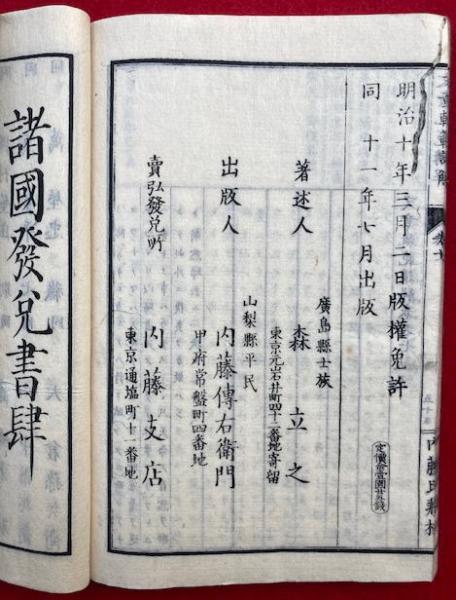 明治十年三月二日版權免許
同　十一年七月出版
廣島縣士族
著述人　森　立之
東京元岩井町四十二番地寄留
山梨縣平民
出版人　内藤傳右衛門
甲府常盤町四番地
賣弘發兌所　内藤支店
東京通塩町十一番地
諸國發兌書肆